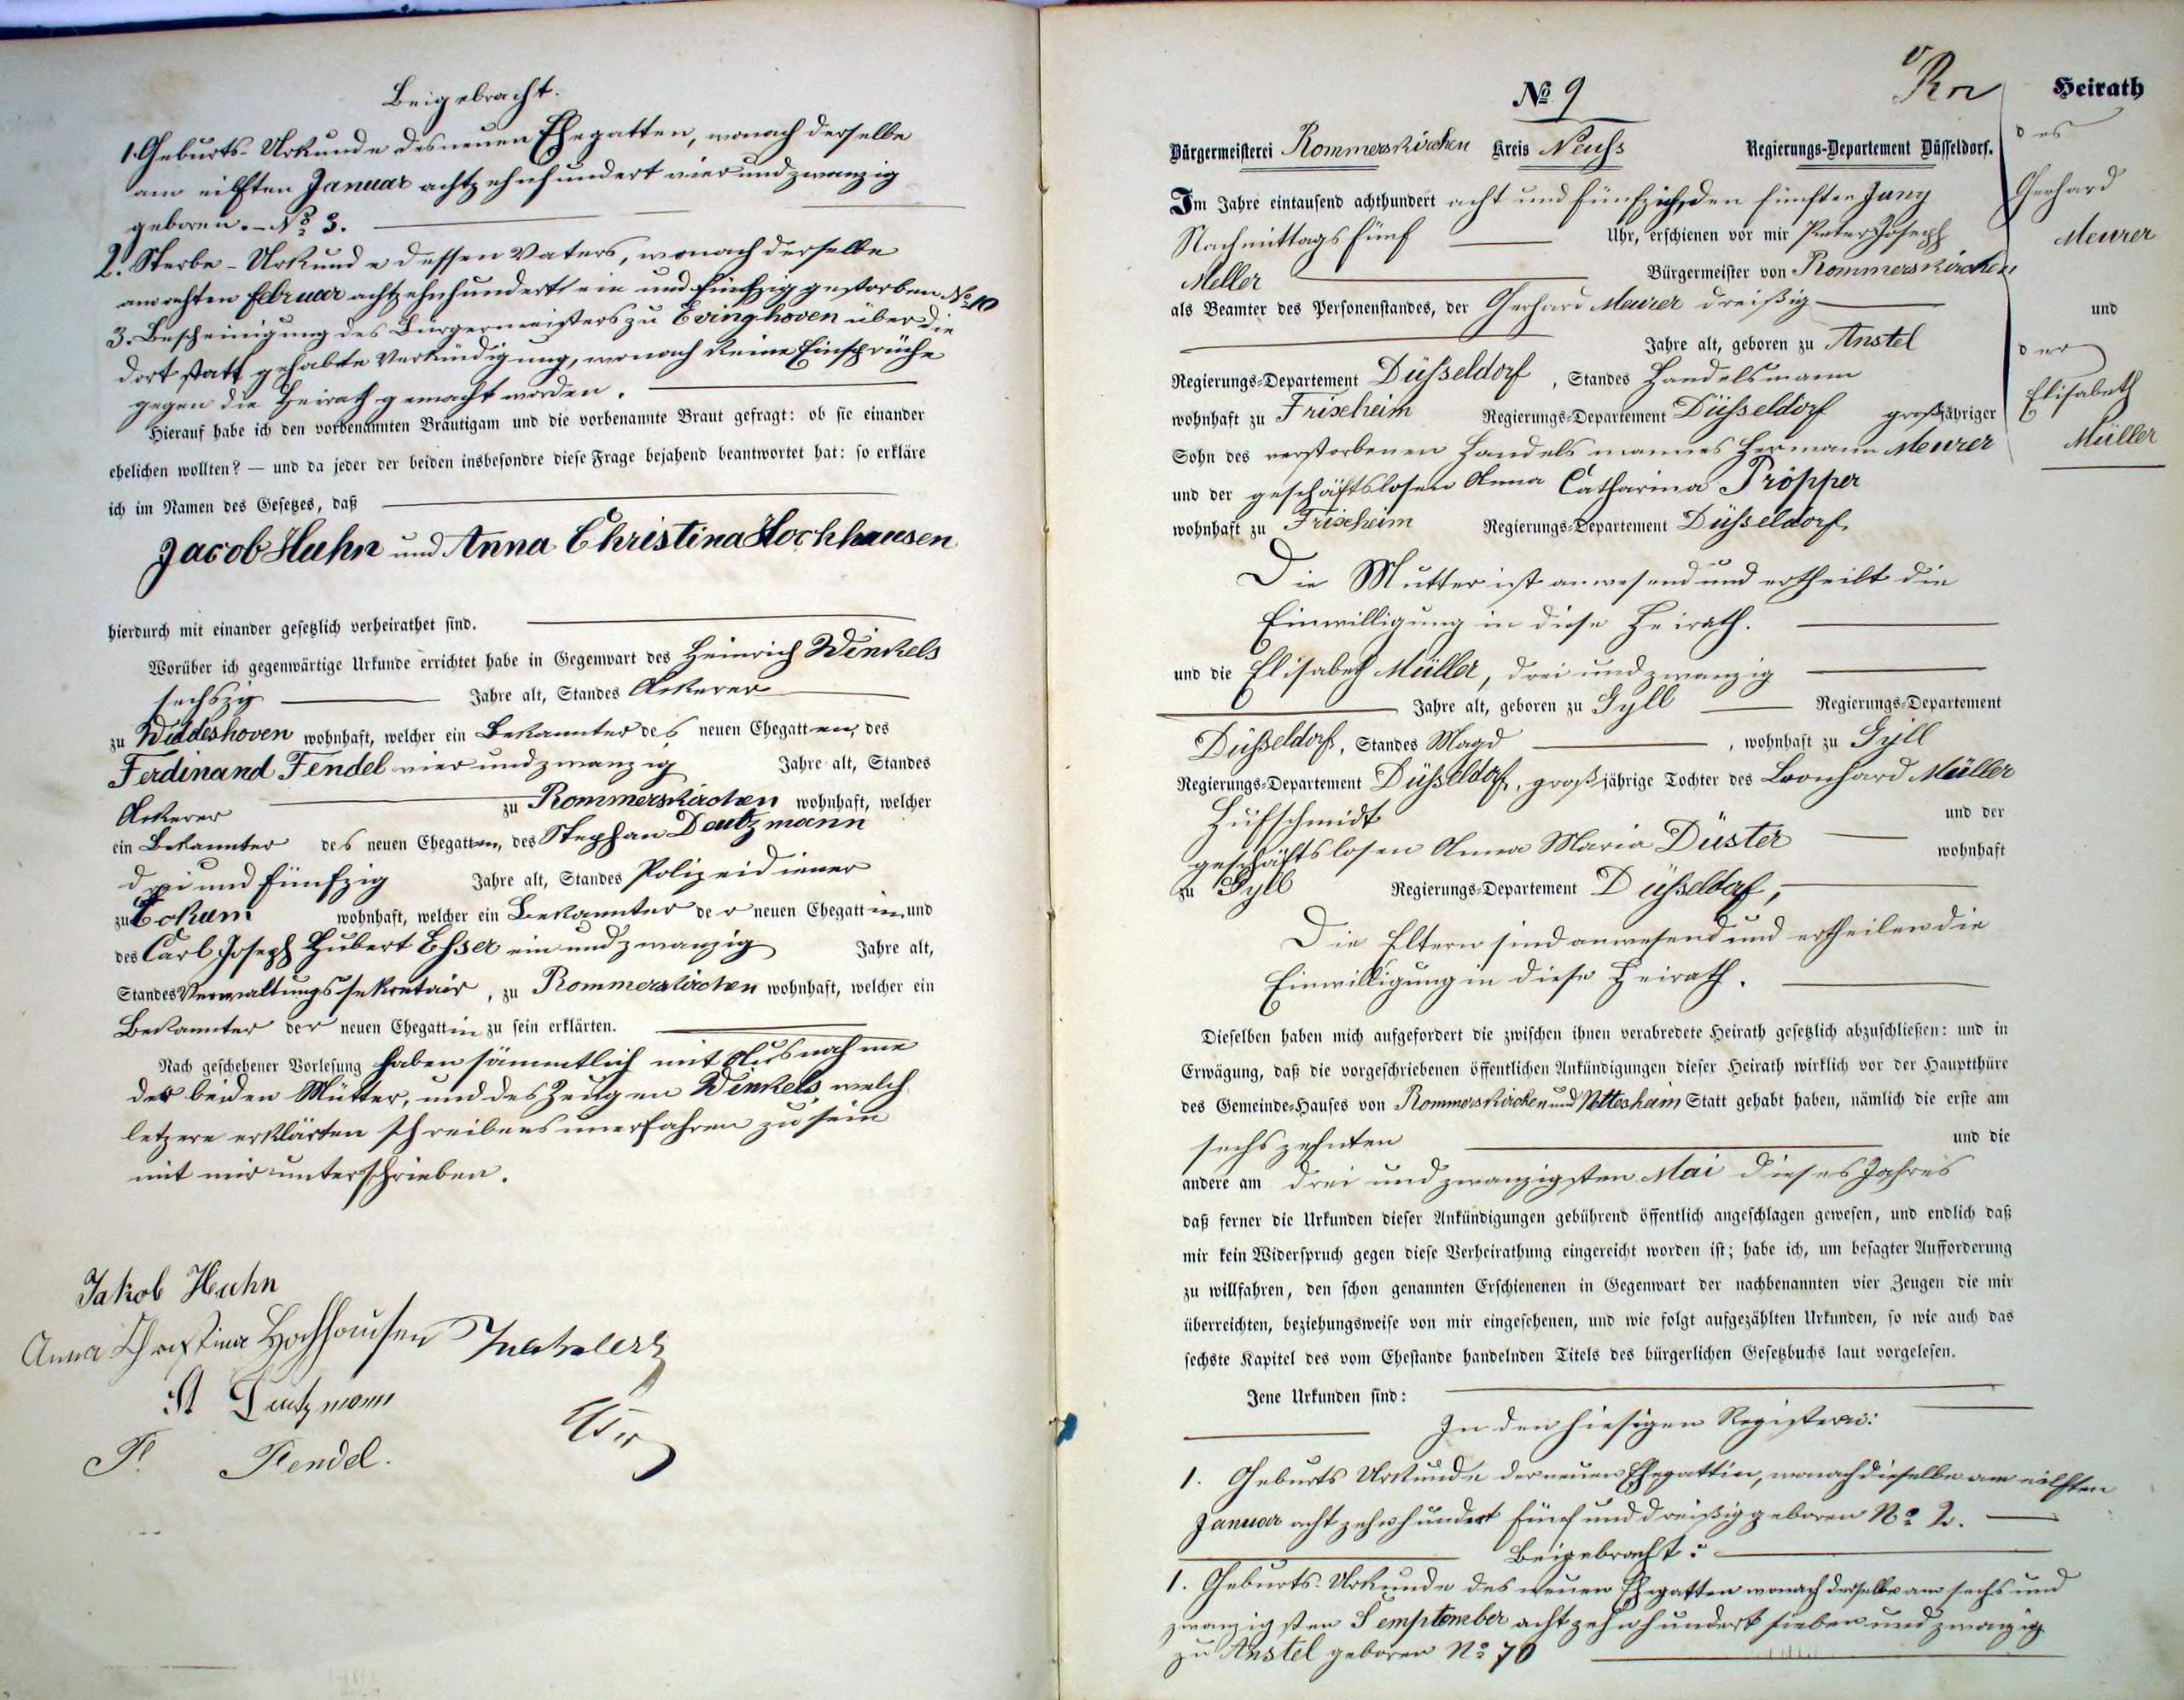 Beigebracht.
1. Geburts-Urkunde des neuen Ehegatten, wonach derselbe
am eilften Januar achtzehnhundert vier und zwanzig
geboren. - No 3.
2. Sterbe-Urkunde dessen Vaters, wonach derselbe
am achten Februar achtzehnhundert ein und fünfzig gestorben No 10
3. Bescheinigung des Bürgermeisters zu Evinghoven über die
dort statt gehabte Verkündigung, wonach keine Einsprüche
gegen die Heirath gemacht worden.
Hierauf habe ich den vorbenannten Bräutigam und die vorbenannte Braut gefragt: ob sie einander
ehelichen wollten? — und da jeder der beiden insbesondre diese Frage bejahend beantwortet hat: so erkläre
ich im Namen des Gesetzes, daß
Jacob Huhn und Anna Christina Hochhausen
hierdurch mit einander gesetzlich verheirathet sind.
Worüber ich gegenwärtige Urkunde errichtet habe in Gegenwart des Heinrich Winkels
sechszig Jahre alt, Standes Ackerer
zu Widdeshoven wohnhaft, welcher ein Bekannter des neuen Ehegatten, des
Ferdinand Fendel vier und zwanzig Jahre alt, Standes
Ackerer zu Rommerskirchen wohnhaft, welcher
ein Bekannter des neuen Ehegatten, des Stephan Deutzmann
drei und fünfzig Jahre alt, Standes Polizeidiener
zu Eckum wohnhaft, welcher ein Bekannter der neuen Ehegattin und
des Carl Joseph Hubert Esser ein und zwanzig Jahre alt,
Standes Verwaltungssekretair, zu Rommerskirchen wohnhaft, welcher ein
Bekannter der neuen Ehegattin zu sein erklärten.
Nach geschehener Vorlesung haben sämmtlich mit Ausnahme
der beiden Mütter, und des Zeugen Winkels, welch
letzere erklärten schreibens unerfahren zu sein
mit mir unterschrieben.
Jakob Huhn
Anna Christina Hochhausen
St Deutzmann
F. Fendel.
No 9
Heirath
des
Gerhard
Meurer
und
der
Elisabeth
Müller
Bürgermeisterei Rommerskirchen Kreis Neuß Regierungs-Departement Düsseldorf.
Im Jahre eintausend achthundert acht und fünfzig, den fünften Juny
Nachmittags fünf Uhr, erschienen vor mir Peter Joseph
Meller Bürgermeister von Rommerskirchen
als Beamter des Personenstandes, der Gerhard Meurer dreißig
Jahre alt, geboren zu Anstel
Regierungs-Departement Düsseldorf, Standes Handelsmann
wohnhaft zu Frixheim Regierungs-Departement Düsseldorf großjähriger
Sohn des verstorbenen Handelsmannes Hermann Meurer
und der geschäftslosen Anna Catharina Pröpper
wohnhaft zu Frixheim Regierungs-Departement Düsseldorf,
Die Mutter ist anwesend und ertheilt die
Einwilligung in diese Heirath.
und die Elisabeth Müller, drei und zwanzig
Jahre alt, geboren zu Gyll Regierungs-Departement
Düsseldorf, Standes Magd, wohnhaft zu Gyll
Regierungs-Departement Düsseldorf, großjährige Tochter des Leonhard Müller
Hufschmidt und der
geschäftslosen Anna Maria Düster wohnhaft
zu Gyll Regierungs-Departement Düsseldorf,
Die Eltern sind anwesend und ertheilen die
Einwilligung in diese Heirath.
Dieselben haben mich aufgefordert die zwischen ihnen verabredete Heirath gesetzlich abzuschließen: und in
Erwägung, daß die vorgeschriebenen öffentlichen Ankündigungen dieser Heirath wirklich vor der Hauptthüre
des Gemeinde-Hauses von Rommerskirchen und Nettesheim Statt gehabt haben, nämlich die erste am
sechszehnten und die
andere am drei und zwanzigsten Mai dieses Jahres
daß ferner die Urkunden dieser Ankündigungen gebührend öffentlich angeschlagen gewesen, und endlich daß
mir kein Widerspruch gegen diese Verheirathung eingereicht worden ist; habe ich, um besagter Aufforderung
zu willfahren, den schon genannten Erschienenen in Gegenwart der nachbenannten vier Zeugen die mir
überreichten, beziehungsweise von mir eingesehenen, und wie folgt aufgezählten Urkunden, so wie auch das
sechste Kapitel des vom Ehestande handelnden Titels des bürgerlichen Gesetzbuchs laut vorgelesen.
Jene Urkunden sind:
In den hiesigen Registern:
1. Geburts Urkunde der neuen Ehegattin, wonach dieselbe am eilften
Januar achtzehnhundert fünf und dreißig geboren No 2.
Beigebracht:
1. Geburts-Urkunde des neuen Ehegatten wonach derselbe am sechs und
zwanzigsten Semptember achtzehnhundert sieben und zwanzig
zu Anstel geboren No 70